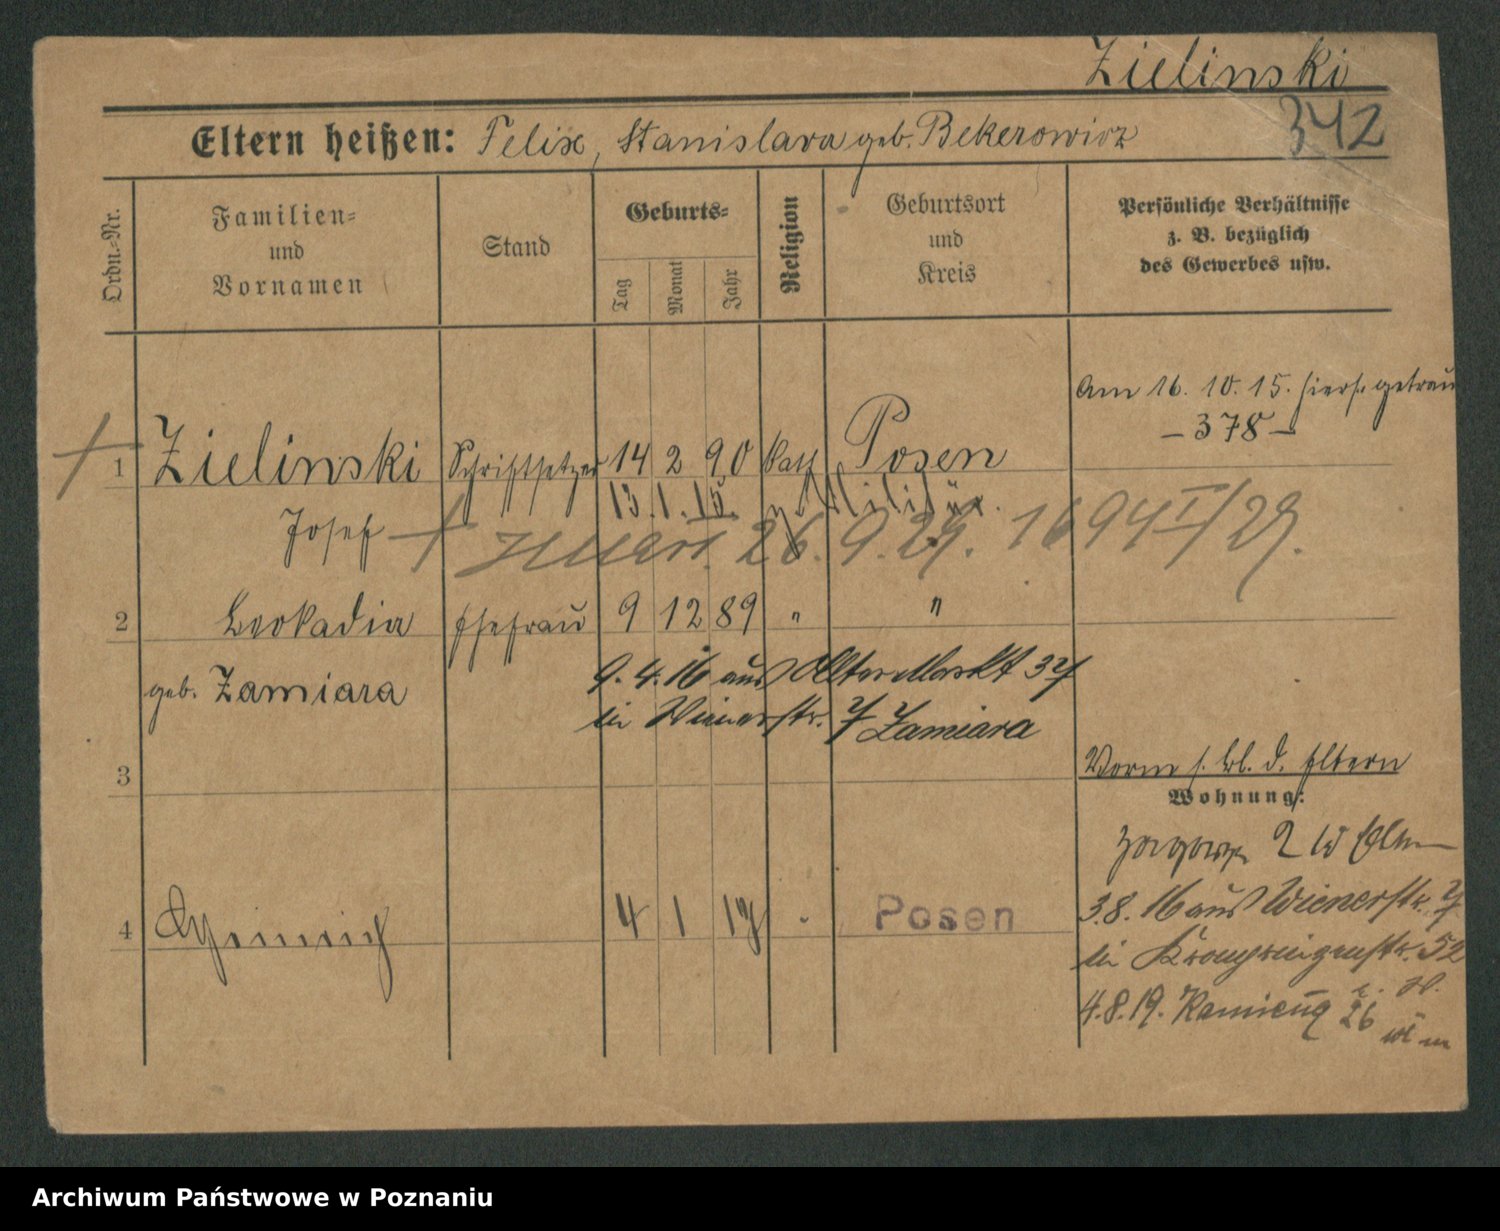 Zielinski
342
Eltern heißen: Felix, Stanislava geb. Bekerowicz
Ordn.-Nr.
Familien-
und
Vornamen
Stand
Geburts-
Tag
Monat
Jahr
Religion
Geburtsort
und
Kreis
Persönliche Verhältnisse
z. B. bezüglich
des Gewerbes usw.
Am 16. 10. 15. hiers. getraut
– 378 –
1 Zielinski Schriftsetzer 14 2 90 kath Posen
13. 1. 15. z. Militär.
Josef + 26. 9. 29. 1694 I/29.
2 Leokadia Ehefrau 9 12 89 " "
geb. Zamiara
9. 4. 16 aus Alter Markt 37
in Wienerstr. 7 Zamiara
3
Vorm s. Bl. d. Eltern
Wohnung:
2 Eltern
3.8. 16 aus Wienerstr. 7
in Kronprinzenstr. 52
4 Heinrich 4 1 17 Posen
4.8.19. 26
Archiwum Państwowe w Poznaniu